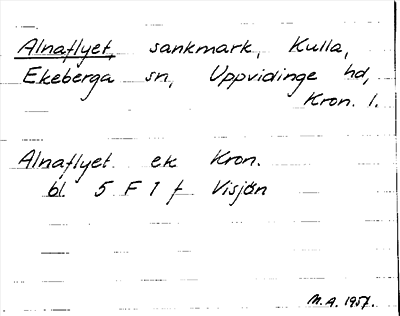 Alnaflyet, sankmark, Kulla,
Ekeberga sn, Uppvidinge hd,
Kron. l.
Alnaflyet ek Kron.
bl. 5 F 1 f Visjön
M.A. 1957.